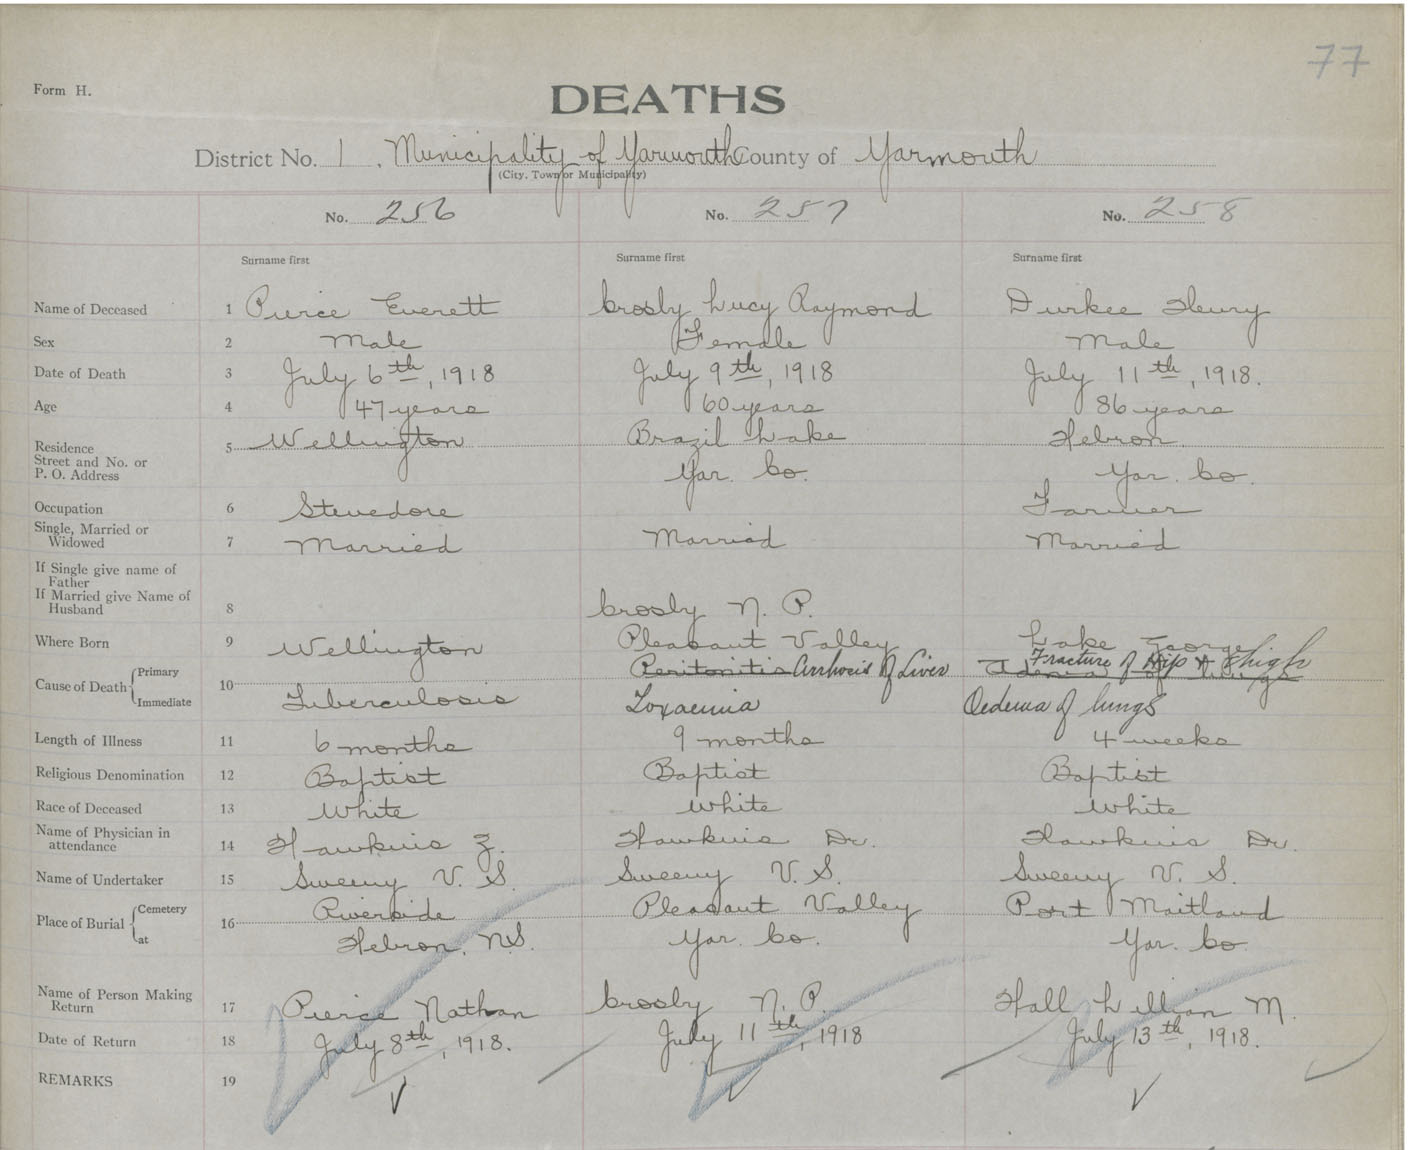 77
Form H.
DEATHS
District No. 1. Municipality of Yarmouth County of Yarmouth
(City, Town or Municipality)
No. 256 No. 257 No. 258
Surname first Surname first Surname first
Name of Deceased 1 Pierce Everett Crosby Lucy Raymond Durkee Henry
Sex 2 Male Female Male
Date of Death 3 July 6th, 1918 July 9th, 1918 July 11th, 1918.
Age 4 47 years 60 years 86 years
Residence 5 Wellington Brazil Lake Hebron
Street and No. or
P. O. Address Yar. Co. Yar. Co.
Occupation 6 Stevedore Farmer
Single, Married or
Widowed 7 Married Married Married
If Single give name of
Father
If Married give Name of
Husband 8 Crosby N. P.
Where Born 9 Wellington Pleasant Valley Lake George
Cause of Death Primary 10 Peritonitis Cirrhocis of Liver Fracture of Hip & Thigh
Immediate Tuberculosis Toxaemia Oedema of lungs
Length of Illness 11 6 months 9 months 4 weeks
Religious Denomination 12 Baptist Baptist Baptist
Race of Deceased 13 White White White
Name of Physician in
attendance 14 Hawkins Z. Hawkins Dr. Hawkins Dr.
Name of Undertaker 15 Sweeny V. S. Sweeny V. S. Sweeny V. S.
Place of Burial Cemetery 16 Riverside Pleasant Valley Port Maitland
at Hebron, N.S. Yar. Co. Yar. Co.
Name of Person Making
Return 17 Pierce Nathan Crosby N. P. Hall Lillian M.
Date of Return 18 July 8th, 1918. July 11th, 1918 July 13th, 1918.
REMARKS 19